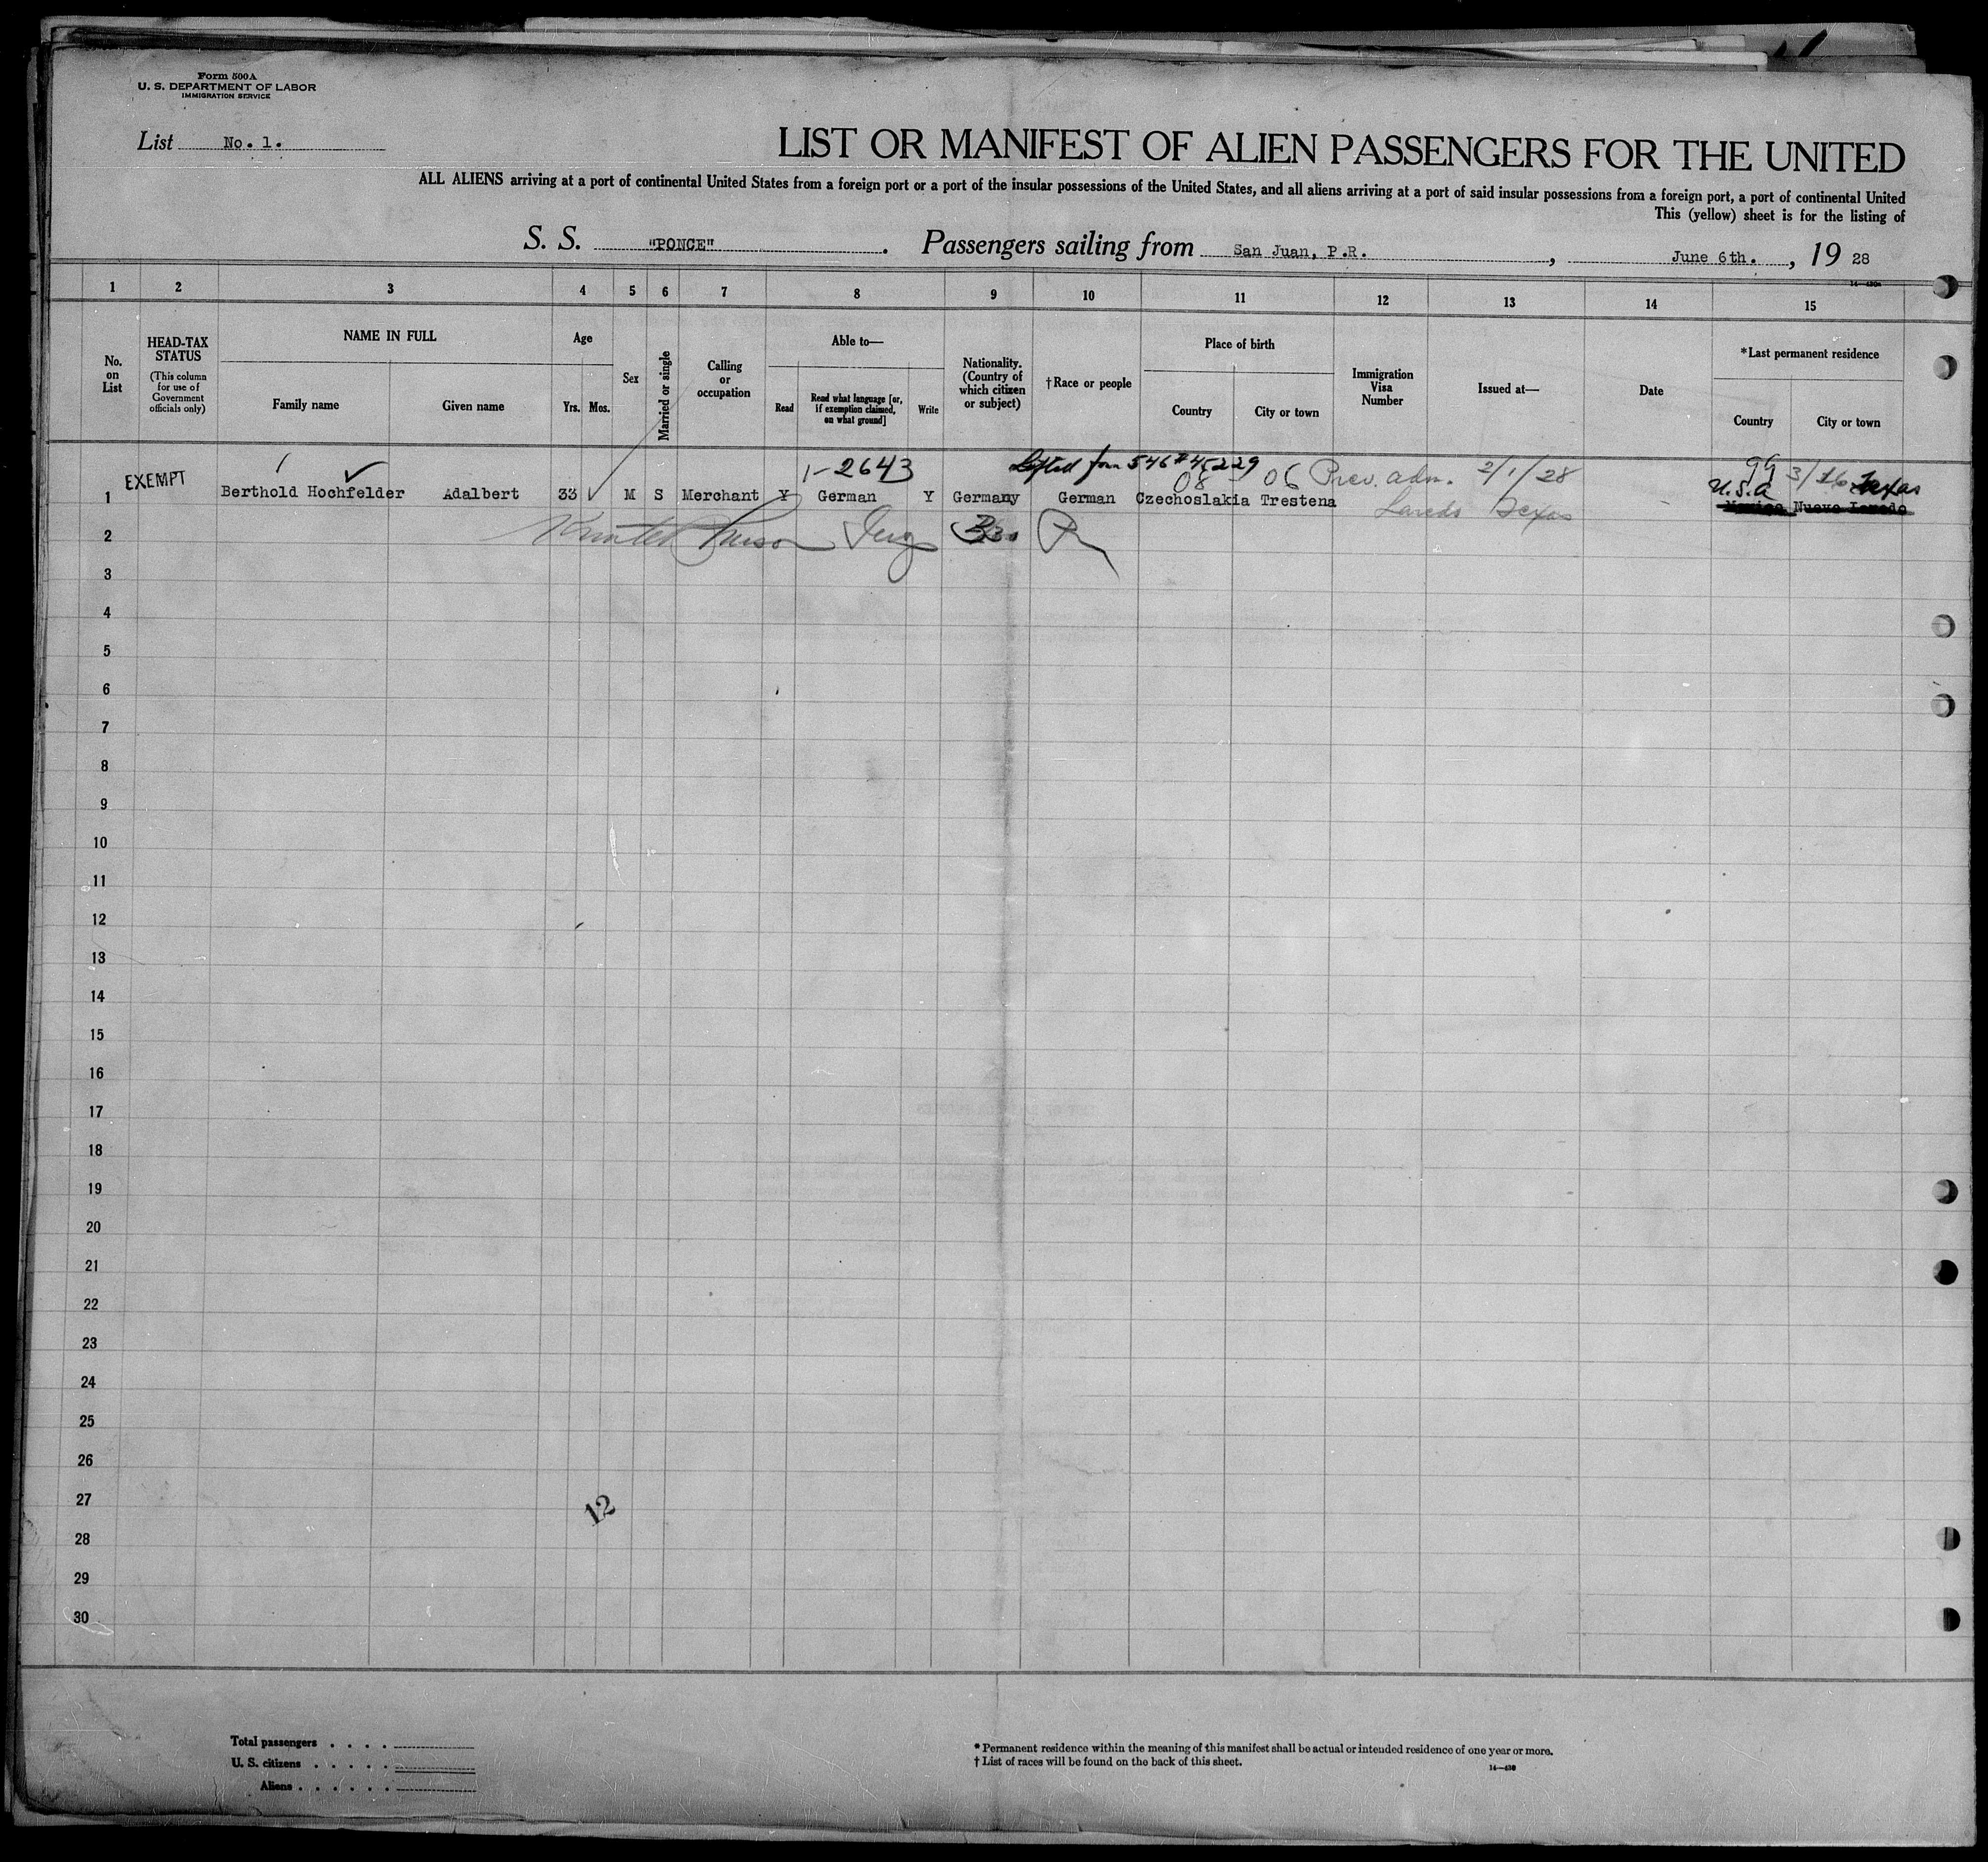 Form 500A
U. S. DEPARTMENT OF LABOR
IMMIGRATION SERVICE
List No. 1.
LIST OR MANIFEST OF ALIEN PASSENGERS FOR THE UNITED
ALL ALIENS arriving at a port of continental United States from a foreign port or a port of the insular possessions of the United States, and all aliens arriving at a port of said insular possessions from a foreign port, a port of continental United
This (yellow) sheet is for the listing of
S. S. "PONCE". Passengers sailing from San Juan, P.R., June 6th., 19 28
1 2 3 4 5 6 7 8 9 10 11 12 13 14 15
No. on List
HEAD-TAX STATUS
(This column for use of Government officials only)
NAME IN FULL
Family name
Given name
Age
Yrs. Mos.
Sex
Married or single
Calling or occupation
Able to—
Read
Read what language [or, if exemption claimed, on what ground]
Write
Nationality. (Country of which citizen or subject)
†Race or people
Place of birth
Country
City or town
Immigration Visa Number
Issued at—
Date
*Last permanent residence
Country
City or town
1-2643 Lifted form 546 #45229
08 - 06 Prev. adm. 2/1/28 99 3/16
1 EXEMPT Berthold Hochfelder Adalbert 33 M S Merchant Y German Y Germany German Czechoslakia Trestena Laredo Texas U.S.A Texas
Mexico Nuevo Laredo
2
3
4
5
6
7
8
9
10
11
12
13
14
15
16
17
18
19
20
21
22
23
24
25
26
27
12
28
29
30
Total passengers . . . .
U. S. citizens . . . . .
Aliens . . . . . .
* Permanent residence within the meaning of this manifest shall be actual or intended residence of one year or more.
† List of races will be found on the back of this sheet.
14—430